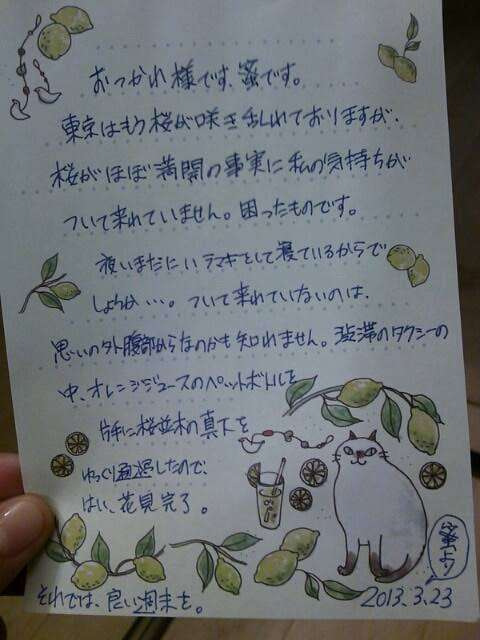 おつかれ様です、蜜です。
東京はもう桜が咲き乱れておりますが、
桜がほぼ満開の事実に私の気持ちが
ついて来れていません。困ったものです。
夜いまだにハラマキをして寝ているからで
しょうか…。ついて来れていないのは、
思いのタト腹部からなのかも知れません。渋滞のタクシーの
中、オレンジジュースのペットボトルを
片手に桜並木の真下を
ゆっくり通過したので、
はい、花見完了。
それでは、良い週末を。
2013.3.23